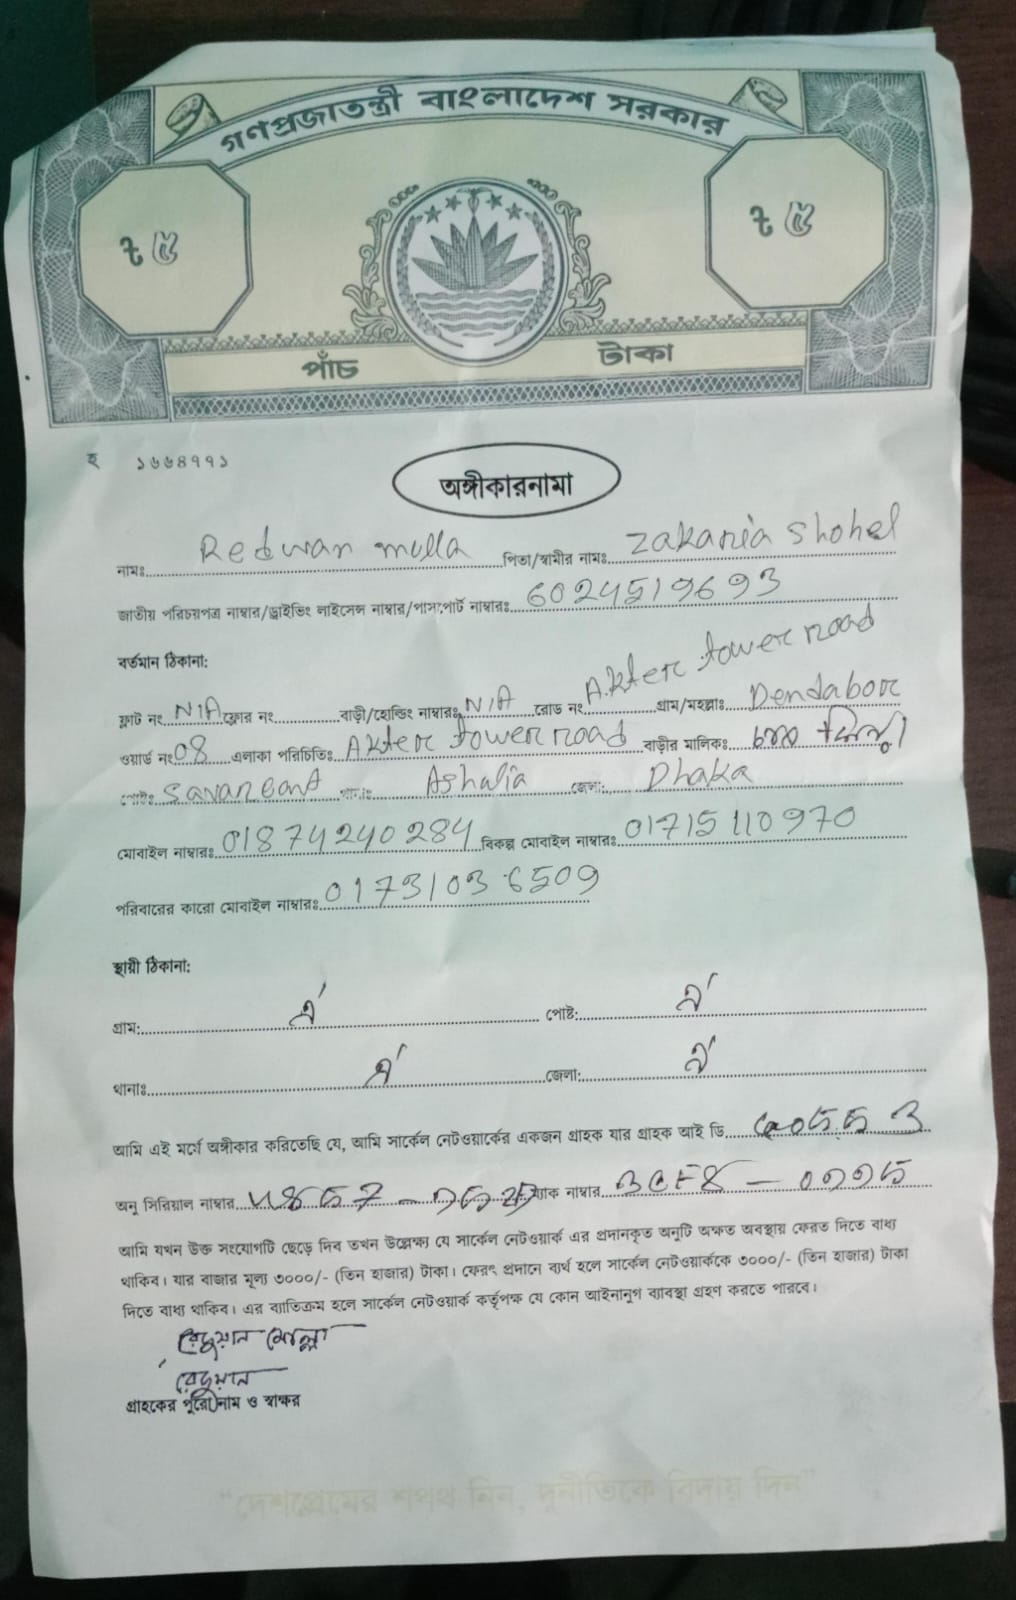 গণপ্রজাতন্ত্রী বাংলাদেশ সরকার
৳ ৫ ৳ ৫
পাঁচ টাকা
হ ১৬৬৪৭৭১
অঙ্গীকারনামা
নামঃ Redwan mulla পিতা/স্বামীর নামঃ Zakaria Shohel
জাতীয় পরিচয়পত্র নাম্বার/ড্রাইভিং লাইসেন্স নাম্বার/পাসপোর্ট নাম্বারঃ 6024519693
বর্তমান ঠিকানা:
ফ্লাট নং N/A ফ্লোর নং বাড়ী/হোল্ডিং নাম্বারঃ N/A রোড নং Akter tower road গ্রাম/মহল্লাঃ Dendabor
ওয়ার্ড নং 08 এলাকা পরিচিতিঃ Akter tower road বাড়ীর মালিকঃ
পোষ্টঃ Savar Cant থানাঃ Ashulia জেলা: Dhaka
মোবাইল নাম্বারঃ 01874240284 বিকল্প মোবাইল নাম্বারঃ 01715110970
পরিবারের কারো মোবাইল নাম্বারঃ 01731036509
স্থায়ী ঠিকানা:
গ্রাম: ঐ পোষ্ট: ঐ
থানাঃ ঐ জেলা: ঐ
আমি এই মর্মে অঙ্গীকার করিতেছি যে, আমি সার্কেল নেটওয়ার্কের একজন গ্রাহক যার গ্রাহক আই ডি
অনু সিরিয়াল নাম্বার ম্যাক নাম্বার
আমি যখন উক্ত সংযোগটি ছেড়ে দিব তখন উল্লেক্ষ্য যে সার্কেল নেটওয়ার্ক এর প্রদানকৃত অনুটি অক্ষত অবস্থায় ফেরত দিতে বাধ্য
থাকিব। যার বাজার মূল্য ৩০০০/- (তিন হাজার) টাকা। ফেরৎ প্রদানে ব্যর্থ হলে সার্কেল নেটওয়ার্ককে ৩০০০/- (তিন হাজার) টাকা
দিতে বাধ্য থাকিব। এর ব্যাতিক্রম হলে সার্কেল নেটওয়ার্ক কর্তৃপক্ষ যে কোন আইনানুগ ব্যাবস্থা গ্রহণ করতে পারবে।
রেদুয়ান মোল্লা
রেদুয়ান
গ্রাহকের পুরো নাম ও স্বাক্ষর
"দেশপ্রেমের শপথ নিন, দুর্নীতিকে বিদায় দিন"